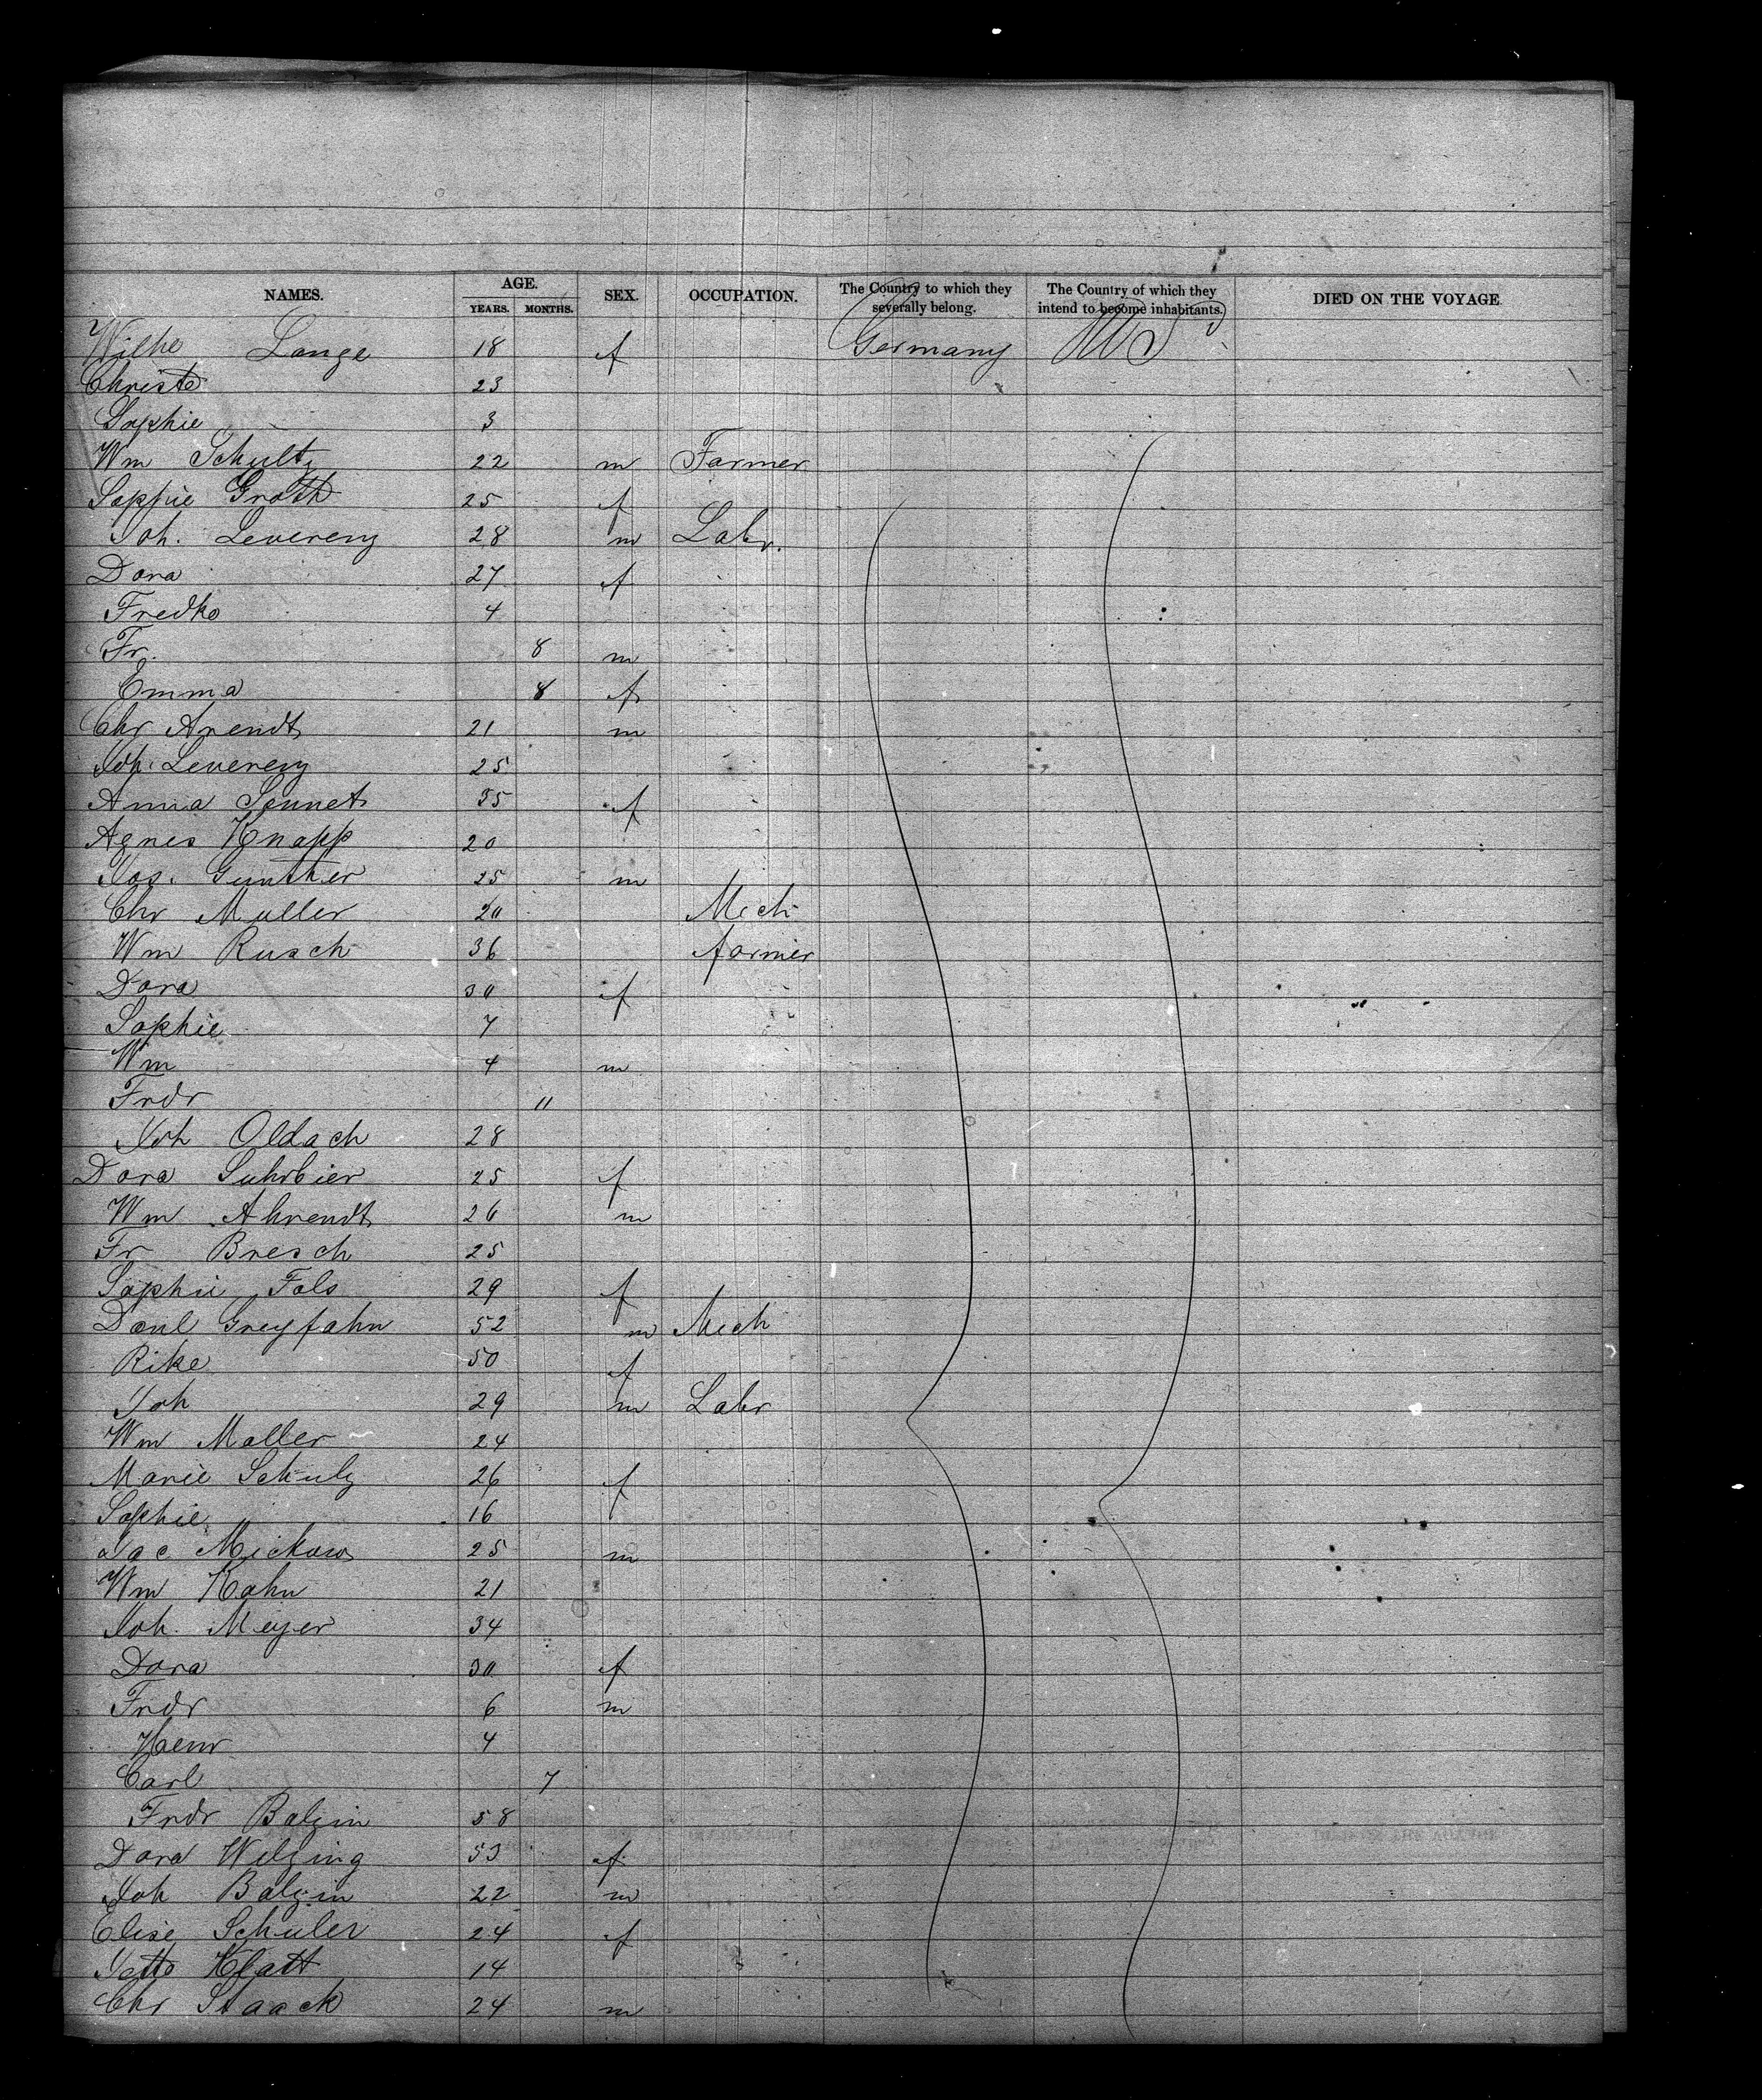 NAMES. AGE. SEX. OCCUPATION. The Country to which they severally belong. The Country of which they intend to become inhabitants. DIED ON THE VOYAGE
YEARS. MONTHS.
Wilhe Lange 18 f Germany US
Christe 23
Sophie 3
Wm Schultz 22 m Farmer
Sophie Groth 25 f
Joh. Leverenz 28 m Labr.
Dora 27 f
Fredke 4
Fr. 8 m
Emma 8 f
Chr Arendt 21 m
Joh. Leverenz 25
Anna Sennet 35 f
Agnes Knapp 20
Jos. Gunther 25 m
Chr Muller 20 Mech
Wm Rusch 36 farmer
Dora 30 f
Sophie 7
Wm 4 m
Fredr 11
Joh Oldach 28
Dora Suhrbier 25 f
Wm Ahrendt 26 m
Fr Bresch 25
Sophie Fols 29 f
Danl Greyfahn 52 m Mech
Rike 50 f
Joh 29 m Labr
Wm Moller 24
Marie Schulz 26 f
Sophie 16
Jac Mickow 25 m
Wm Hahn 21
Joh. Meyer 34
Dora 30 f
Fredr 6 m
Henr 4
Carl 7
Fredr Balzin 58
Dora Wilzing 53 f
Joh Balzin 22 m
Elise Schuler 24 f
Jette Klatt 14
Chr Staack 24 m